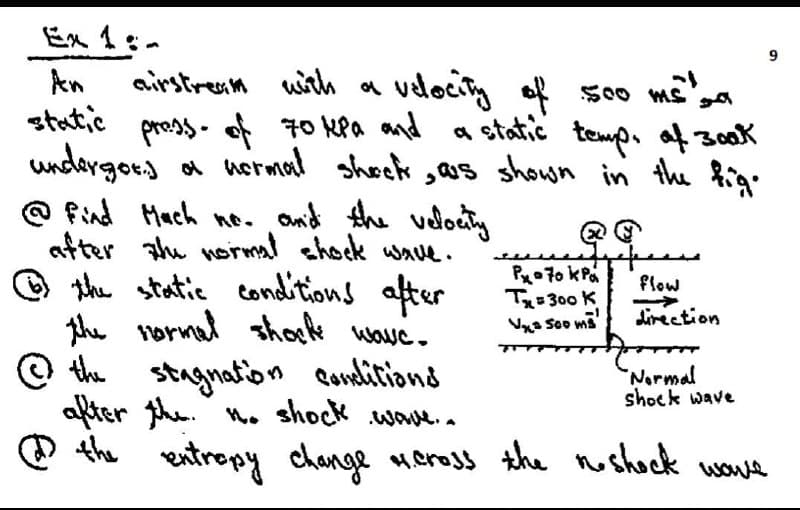 Ex 1 :-
9
An airstream with a velocity of 500 ms⁻¹, a
static press. of 70 kPa and a static temp. of 300K
undergoes a normal shock, as shown in the fig.
ⓐ find Mach no. and the velocity
after the normal shock wave.
ⓑ the static conditions after
the normal shock wave.
ⓒ the stagnation conditions
after the n. shock wave.
ⓓ the entropy change across the n. shock wave
ⓧ ⓨ
Pₓ = 70 kPa
Tₓ = 300 K
Vₓ = 500 ms⁻¹
flow
direction
Normal
shock wave